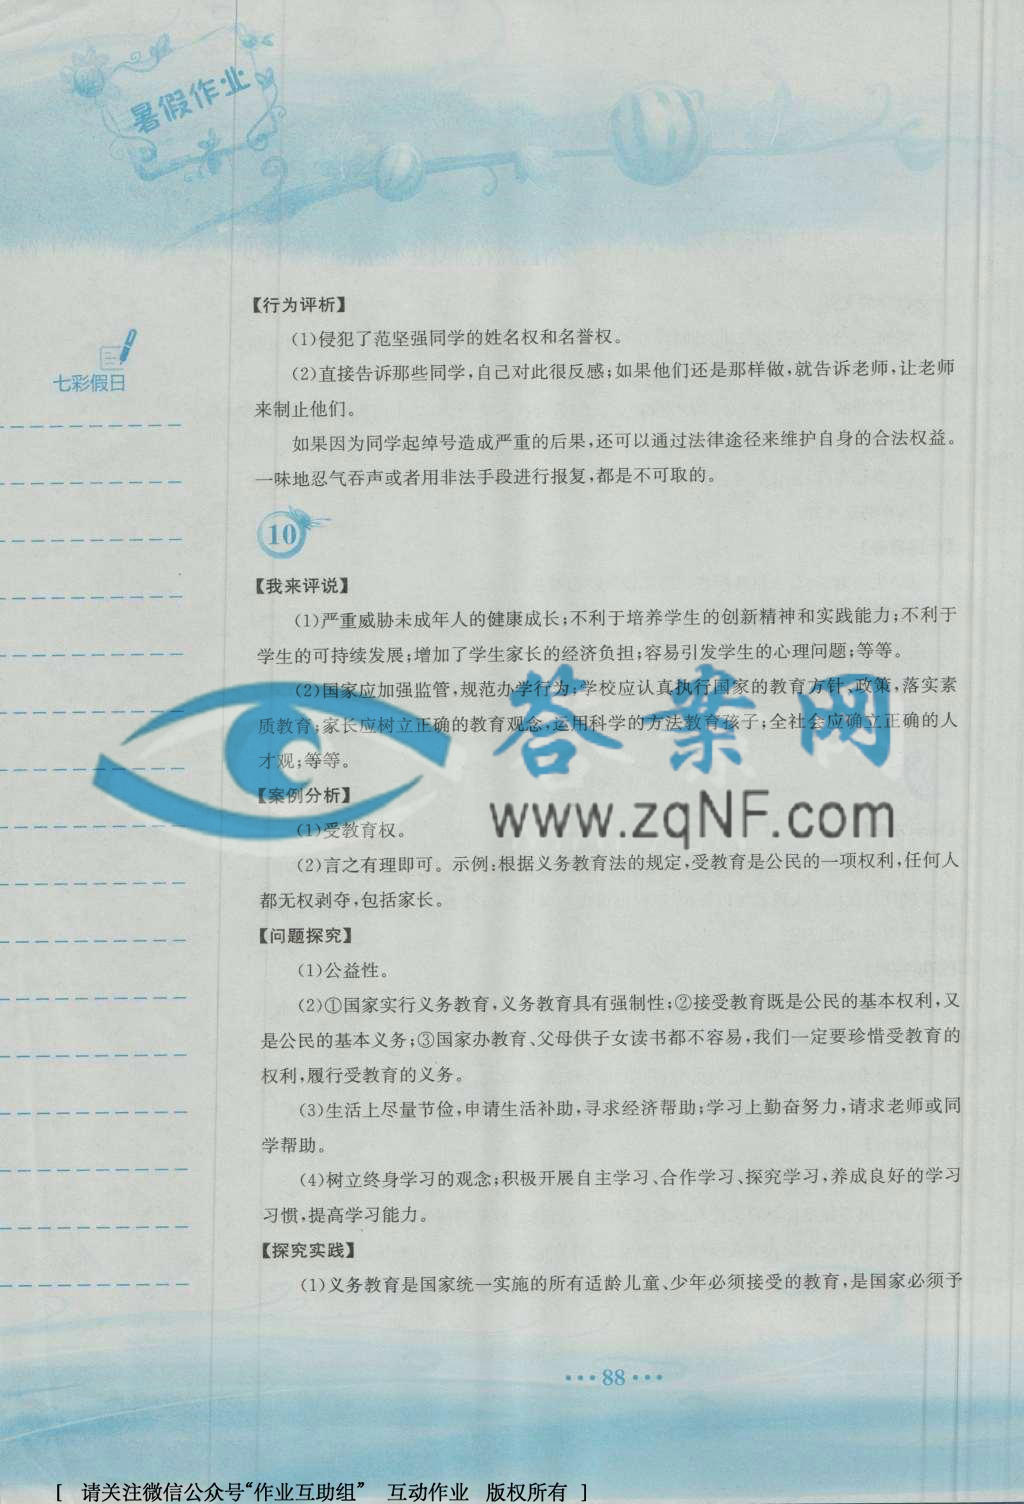 暑假作业
【行为评析】
(1)侵犯了范坚强同学的姓名权和名誉权。
七彩假日
(2)直接告诉那些同学,自己对此很反感;如果他们还是那样做,就告诉老师,让老师
来制止他们。
如果因为同学起绰号造成严重的后果,还可以通过法律途径来维护自身的合法权益。
一味地忍气吞声或者用非法手段进行报复,都是不可取的。
10
【我来评说】
(1)严重威胁未成年人的健康成长;不利于培养学生的创新精神和实践能力;不利于
学生的可持续发展;增加了学生家长的经济负担;容易引发学生的心理问题;等等。
(2)国家应加强监管,规范办学行为;学校应认真执行国家的教育方针、政策,落实素
质教育;家长应树立正确的教育观念,运用科学的方法教育孩子;全社会应确立正确的人
才观;等等。
答案网
www.zqNF.com
【案例分析】
(1)受教育权。
(2)言之有理即可。示例:根据义务教育法的规定,受教育是公民的一项权利,任何人
都无权剥夺,包括家长。
【问题探究】
(1)公益性。
(2)①国家实行义务教育,义务教育具有强制性;②接受教育既是公民的基本权利,又
是公民的基本义务;③国家办教育、父母供子女读书都不容易,我们一定要珍惜受教育的
权利,履行受教育的义务。
(3)生活上尽量节俭,申请生活补助,寻求经济帮助;学习上勤奋努力,请求老师或同
学帮助。
(4)树立终身学习的观念;积极开展自主学习、合作学习、探究学习,养成良好的学习
习惯,提高学习能力。
【探究实践】
(1)义务教育是国家统一实施的所有适龄儿童、少年必须接受的教育,是国家必须予
•••88•••
[ 请关注微信公众号“作业互助组” 互动作业 版权所有 ]